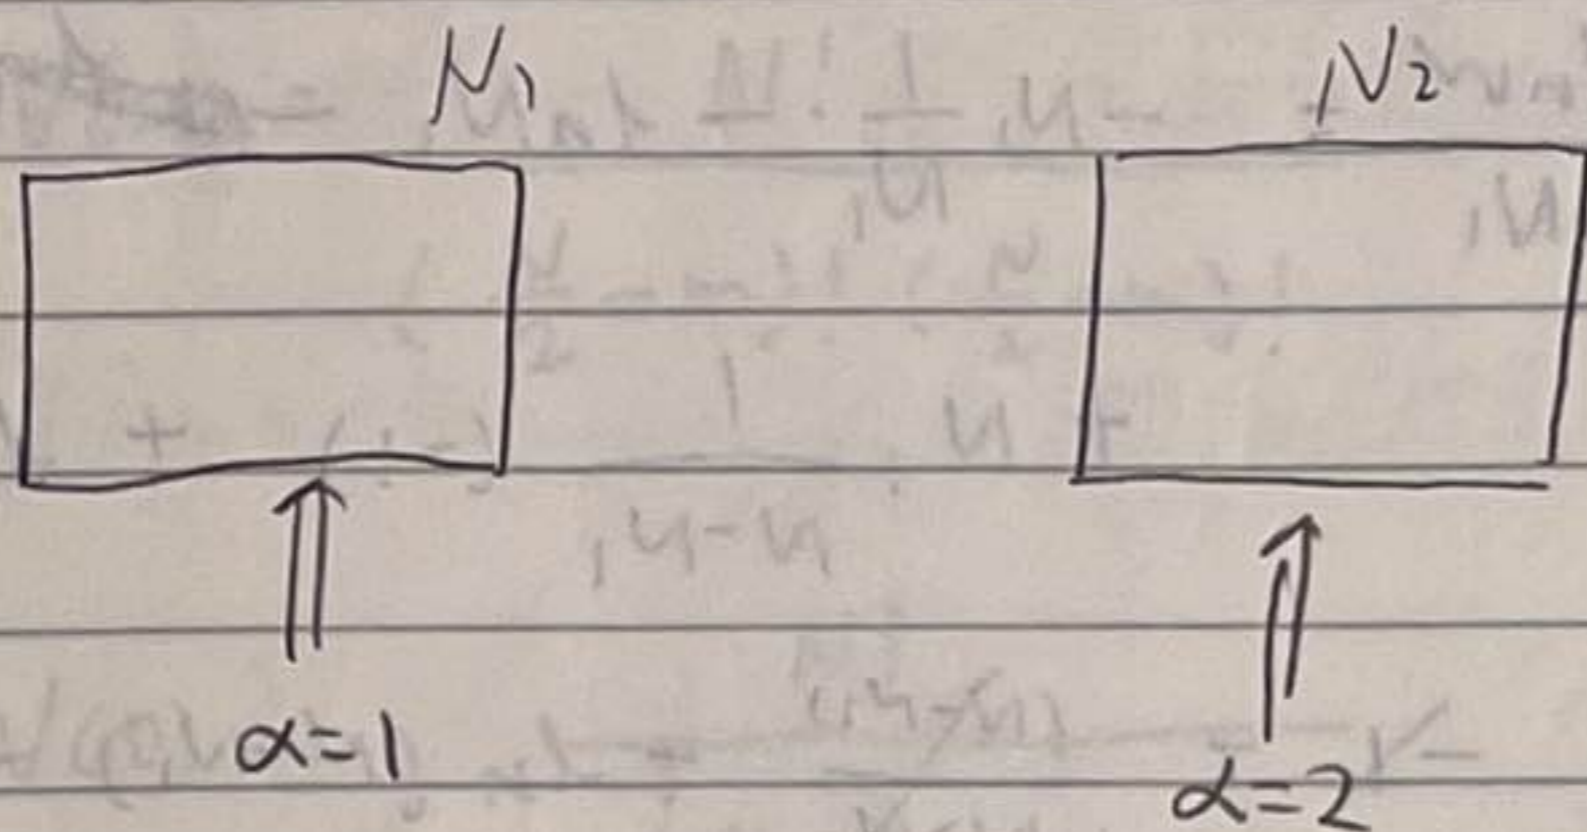 N₁ N₂
α=1
α=2